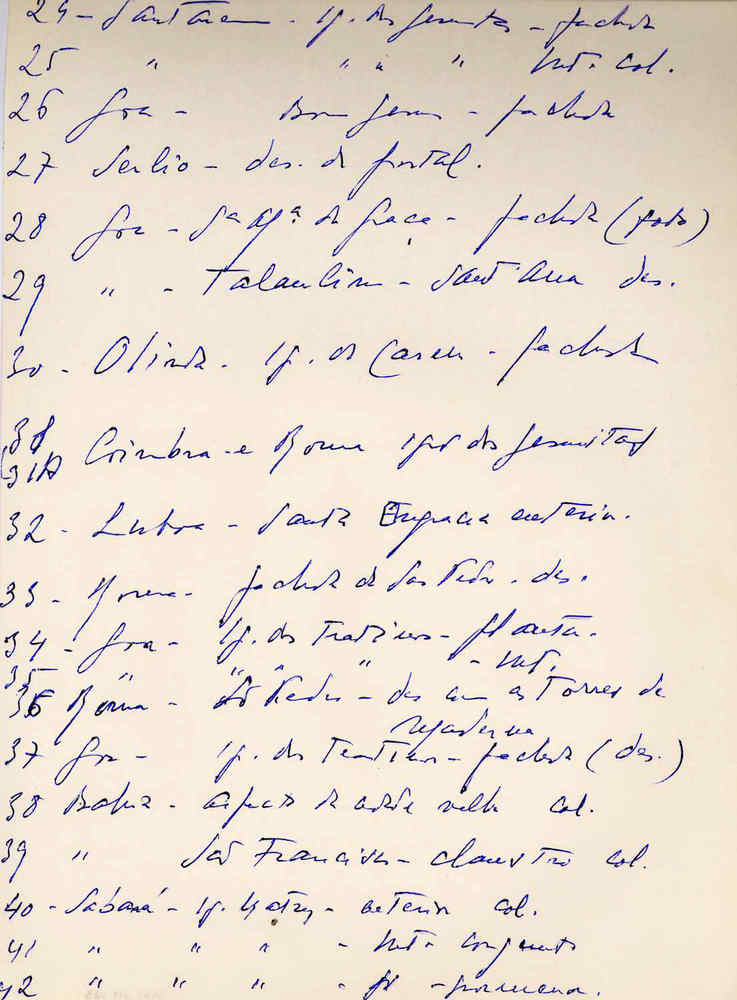 24 - Santarem - Ig. dos Jesuitas - fachada
25 " " " " Int. col.
26 Goa - Bom Jesus - fachada
27 Serlio - des. de portal.
28 Goa - Sta Ma da Graça - fachada (foto)
29 " - Talaulim - Sant'Ana des.
30 - Olinda - Ig. do Carmo - fachada
31
31A Coimbra e Roma Igrs dos Jesuitas
32 - Lisboa - Santa Engracia exterior.
33 - Roma - fachada de São Pedro - des.
34 - Goa - Ig. dos Teatinos - planta.
35 " " " " - Int.
36 Roma - São Pedro - des com as Torres de
Maderna
37 Goa - Ig. dos Teatinos - fachada (des.)
38 Bahia - aspecto da cidade velha col.
39 " São Francisco - claustro col.
40 - Sabará - Ig. Matriz - exterior col.
41 " " " - Int. conjunto
42 " " " - pormenor.